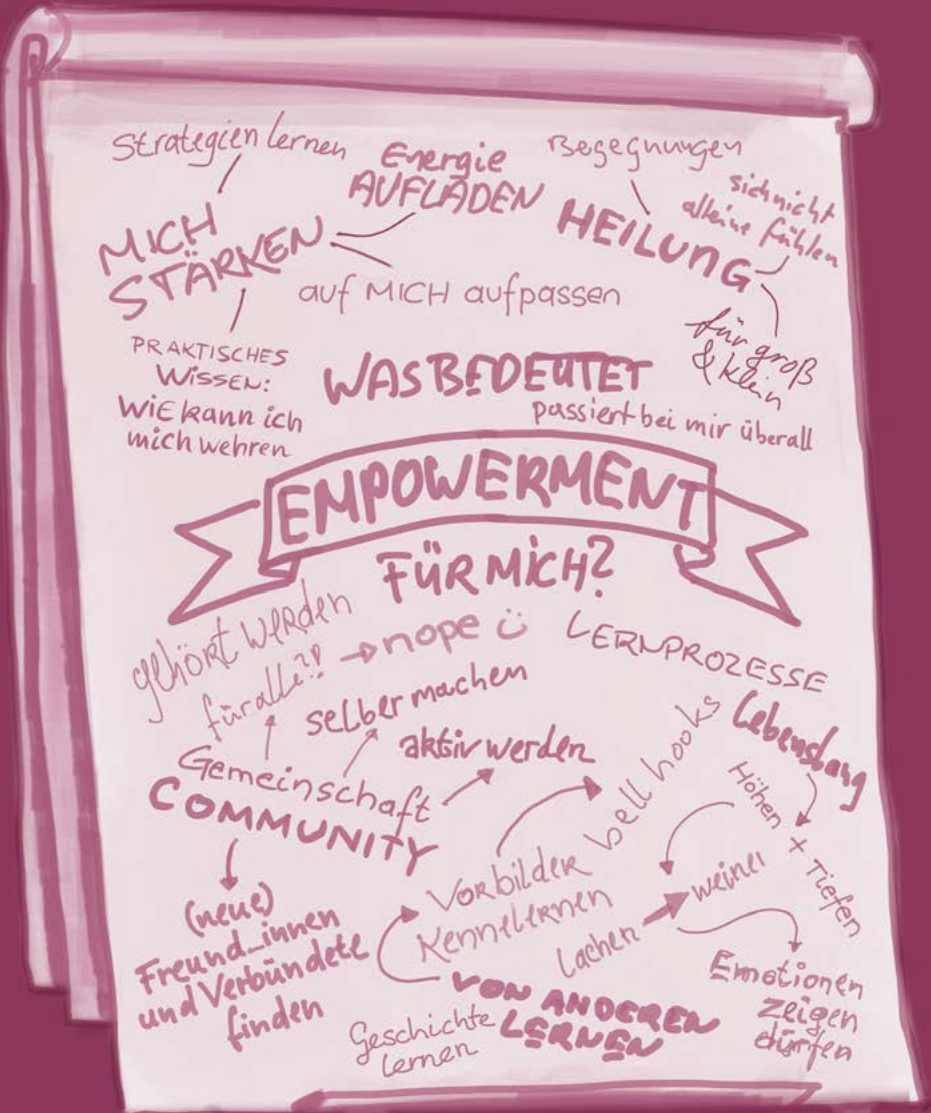 Strategien lernen
Energie
AUFLADEN
Begegnungen
sich nicht
alleine fühlen
MICH
STÄRKEN
HEILUNG
auf MICH aufpassen
für groß
& klein
PRAKTISCHES
WISSEN:
WIE kann ich
mich wehren
WAS BEDEUTET
passiert bei mir überall
EMPOWERMENT
FÜR MICH?
gehört werden
für alle?!
→ nope ü
LERNPROZESSE
Lebenslang
Höhen + Tiefen
selber machen
aktiv werden
Gemeinschaft
COMMUNITY
bell hooks
Vorbilder
Kennelernen
lachen
weinen
(neue)
Freund_innen
und Verbündete
finden
VON ANDEREN
LERNEN
Geschichte
lernen
Emotionen
zeigen
dürfen